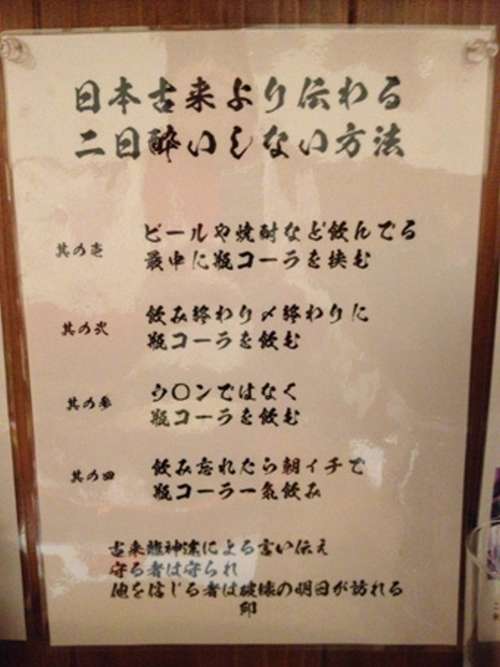 日本古来より伝わる
二日酔いしない方法
其の壱
ビールや焼酎など飲んでる
最中に瓶コーラを挟む
其の弐
飲み終わり〆終わりに
瓶コーラを飲む
其の参
ウ〇ンではなく
瓶コーラを飲む
其の四
飲み忘れたら朝イチで
瓶コーラ一気飲み
古来龍神達による言い伝え
守る者は守られ
他を信じる者は破壊の明日が訪れる